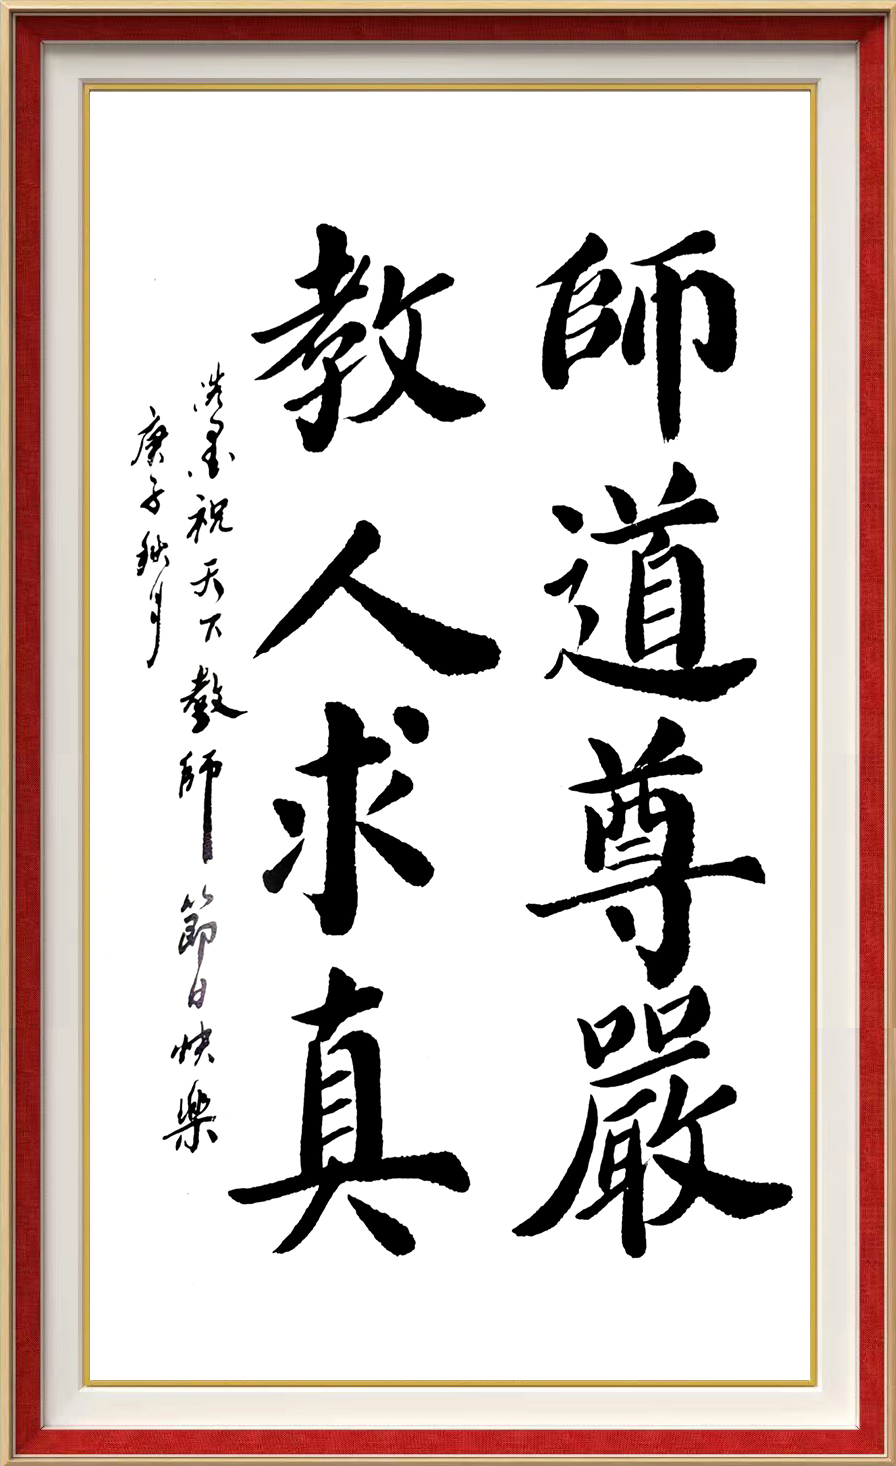 師道尊嚴
教人求真
浩墨祝天下教師節日快樂
庚子秋月